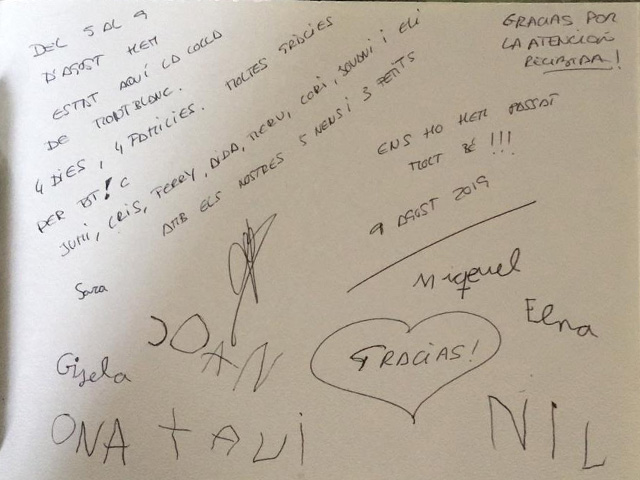 DEL 5 AL 9
D'AGOST HEM
ESTAT AQUÍ LA COLLA
DE MONTBLANC.
4 DIES, 4 FAMILIES. MOLTES GRÀCIES
PER TOT! 
JUTI, CRIS, FERRY, AIDA, MERU, CORI, JOVANI i ELI
AMB ELS NOSTRES 5 NENS i 3 PETITS
GRACIAS POR
LA ATENCIÓN
RECIBIDA!
ENS HO HEM PASSAT
MOLT BÉ !!!
9 AGOST 2019
Sara
Miquel
Elna
JOAN
Gisela
GRACIAS!
ONA TAVI
NIL